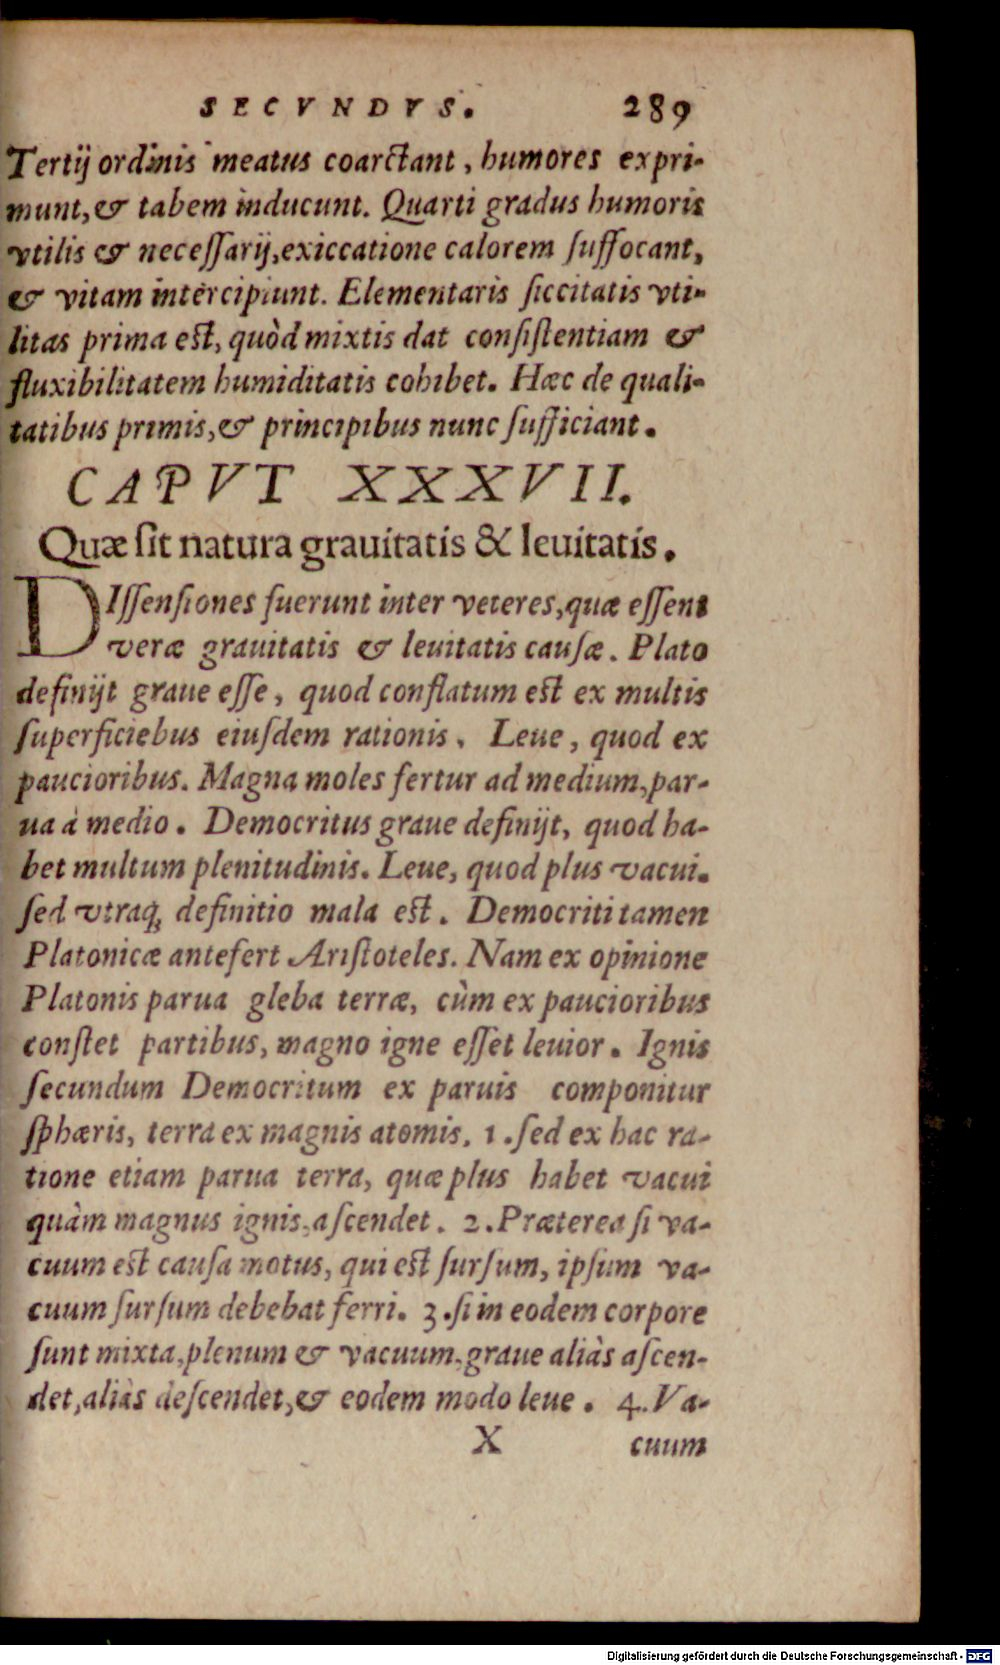 SECVNDVS. 289
Tertij ordinis meatus coarctant, humores expri-
munt, & tabem inducunt. Quarti gradus humoris
vtilis & neceſſarij, exiccatione calorem ſuffocant,
& vitam intercipiunt. Elementaris ſiccitatis vti-
litas prima est, quòd mixtis dat conſiſtentiam &
fluxibilitatem humiditatis cohibet. Hæc de quali-
tatibus primis, & principibus nunc ſufficiant.
CAPVT XXXVII.
Quæ ſit natura grauitatis & leuitatis.
DIſſenſiones fuerunt inter veteres, quæ eſſent
veræ grauitatis & leuitatis cauſæ. Plato
definijt graue eſſe, quod conflatum est ex multis
ſuperficiebus eiuſdem rationis. Leue, quod ex
paucioribus. Magna moles fertur ad medium, par-
ua à medio. Democritus graue definijt, quod ha-
bet multum plenitudinis. Leue, quod plus vacui.
ſed vtraq; definitio mala est. Democriti tamen
Platonicæ antefert Ariſtoteles. Nam ex opinione
Platonis parua gleba terræ, cùm ex paucioribus
conſtet partibus, magno igne eſſet leuior. Ignis
ſecundum Democritum ex paruis componitur
ſphæris, terra ex magnis atomis. 1. ſed ex hac ra-
tione etiam parua terra, quæ plus habet vacui
quàm magnus ignis, aſcendet. 2. Præterea ſi va-
cuum est cauſa motus, qui est ſurſum, ipſum va-
cuum ſurſum debebat ferri. 3. ſi in eodem corpore
ſunt mixta, plenum & vacuum, graue aliàs aſcen-
det, aliàs deſcendet, & eodem modo leue. 4. Va-
X cuum
Digitalisierung gefördert durch die Deutsche Forschungsgemeinschaft - DFG